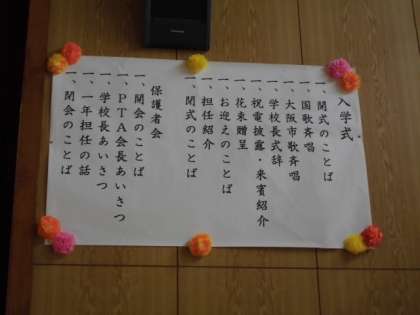 入学式
一、開式のことば
一、国歌斉唱
一、大阪市歌斉唱
一、学校長式辞
一、祝電披露・来賓紹介
一、花束贈呈
一、お迎えのことば
一、担任紹介
一、閉式のことば
保護者会
一、開会のことば
一、PTA会長あいさつ
一、学校長あいさつ
一、一年担任の話
一、閉会のことば